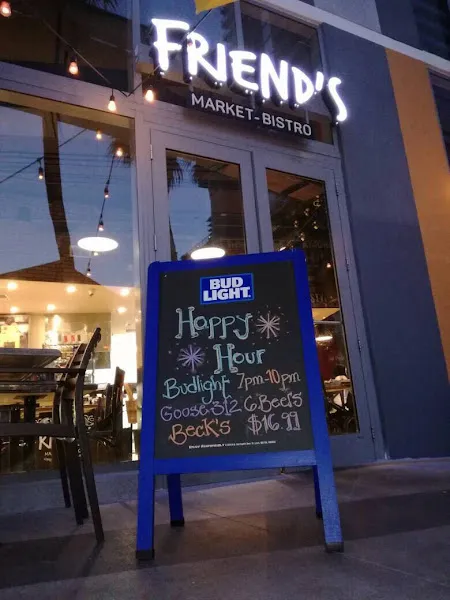 FRIEND'S
MARKET-BISTRO
BUD
LIGHT
Happy
Hour
Budlight 7pm-10pm
Goose 312 6 Beer's
Beck's $16.99